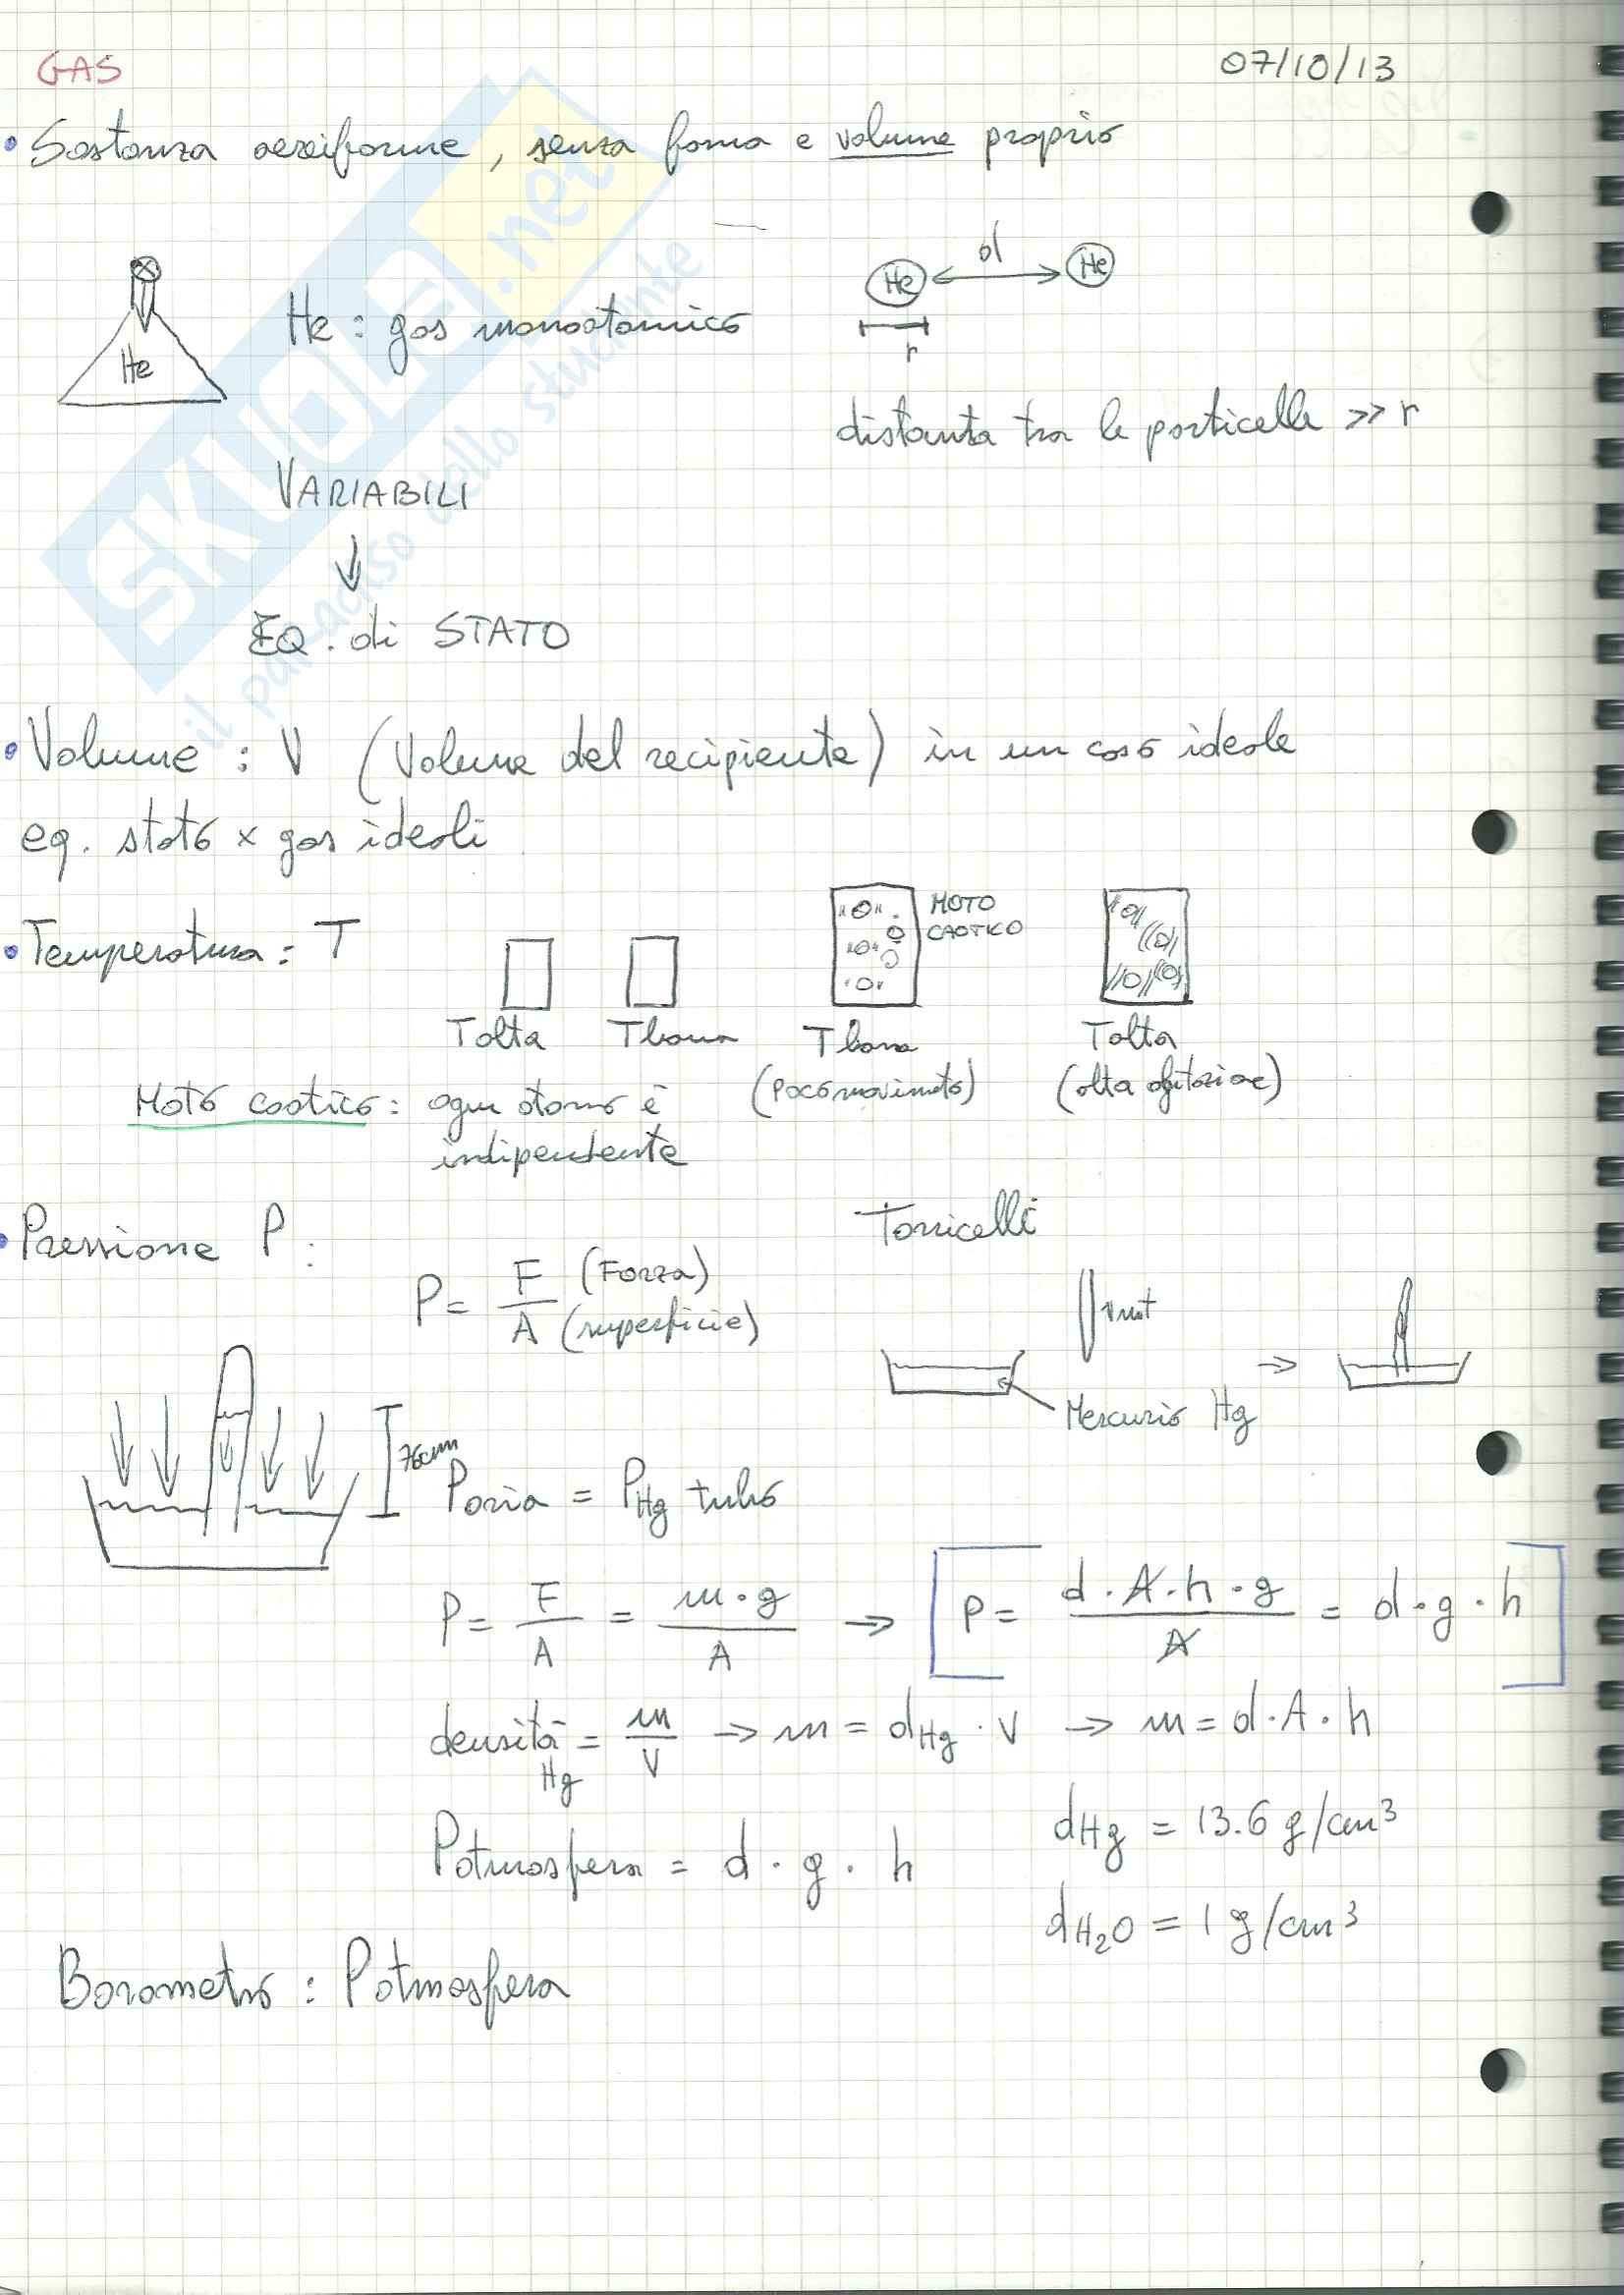 GAS
07/10/13
• Sostanza aeriforme, senza forma e volume proprio
He d He
He
He : gas monoatomico
r
distanza tra le particelle >> r
VARIABILI
↓
EQ. di STATO
• Volume : V (Volume del recipiente) in un caso ideale
eq. stato x gas ideali
• Temperatura : T
MOTO
CAOTICO
Talta Tbassa Tbassa Talta
(poco movimento) (alta agitazione)
Moto caotico : ogni atomo è
indipendente
• Pressione P :
Torricelli
P = F (Forza) / A (superficie)
vuoto
→
Mercurio Hg
76cm
Paria = PHg tubo
P = F/A = m · g / A → [ P = d · A · h · g / A = d · g · h ]
densità Hg = m/V → m = dHg · V → m = d · A · h
dHg = 13.6 g/cm³
Patmosfera = d · g · h
dH₂O = 1 g/cm³
Barometro : Patmosfera
SKUOLA.net
il paradiso dello studente